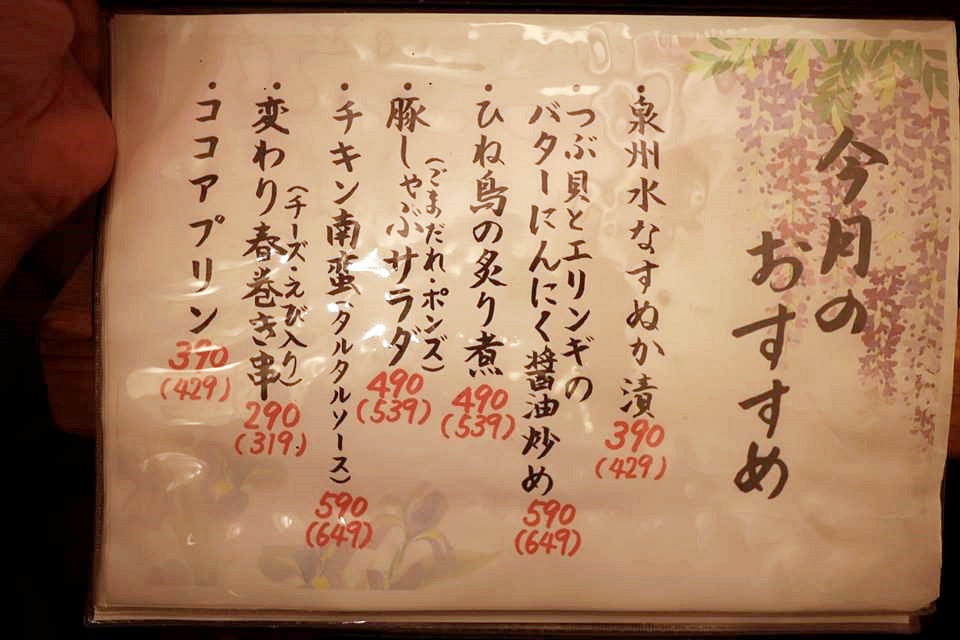 今月の
おすすめ
・泉州水なすぬか漬
390
(429)
・つぶ貝とエリンギの
バターにんにく醤油炒め
590
(649)
・ひね鳥の炙り煮
490
(539)
・豚しゃぶサラダ
(ごまだれ・ポンズ)
490
(539)
・チキン南蛮(タルタルソース)
590
(649)
・変わり春巻き串
(チーズ・えび入り)
290
(319)
・ココアプリン
390
(429)